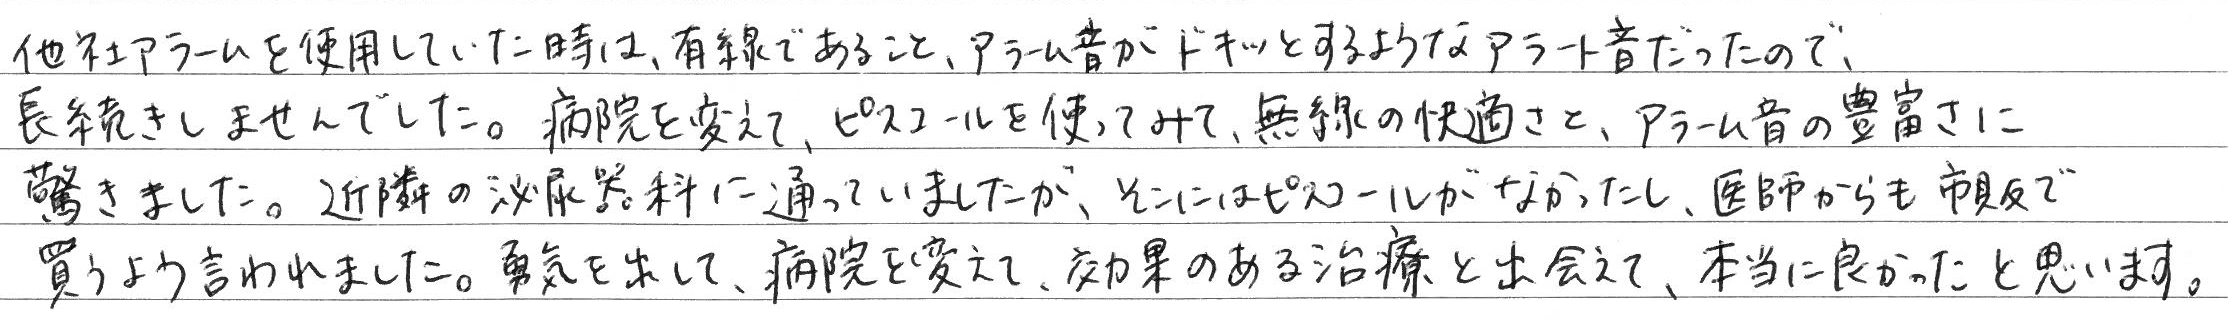 他社アラームを使用していた時は、有線であること、アラーム音がドキッとするようなアラート音だったので、
長続きしませんでした。病院を変えて、ピスコールを使ってみて、無線の快適さと、アラーム音の豊富さに
驚きました。近隣の泌尿器科に通っていましたが、そこにはピスコールがなかったし、医師からも市販で
買うよう言われました。勇気を出して、病院を変えて、効果のある治療と出会えて、本当に良かったと思います。